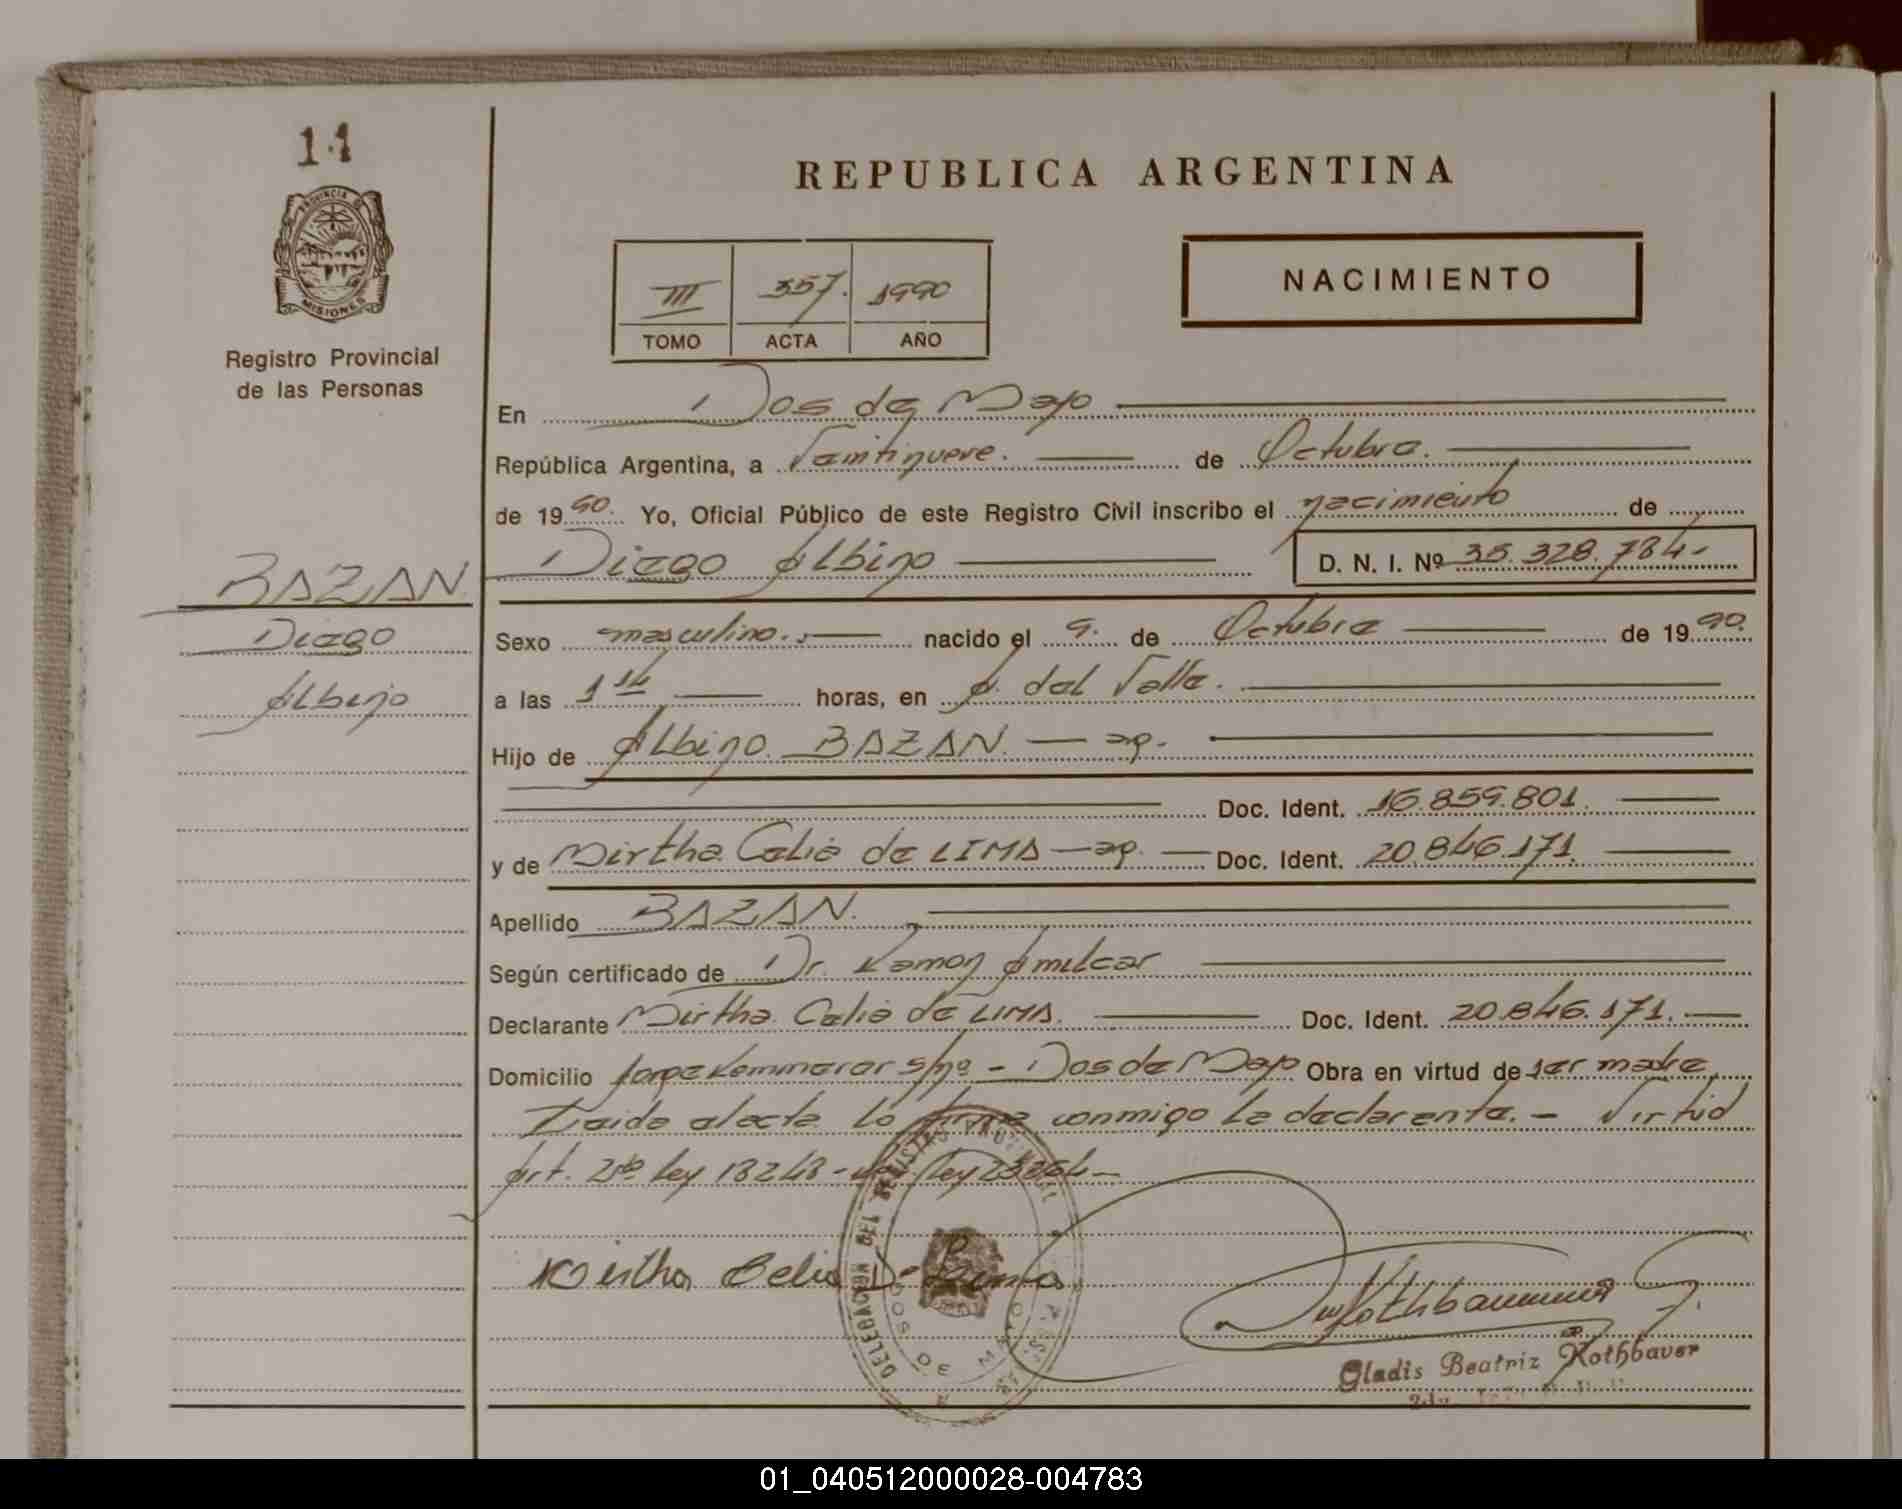 14
PROVINCIA DE
MISIONES
Registro Provincial
de las Personas
BAZAN
Diego
Albino
REPUBLICA ARGENTINA
III 357. 1990
TOMO ACTA AÑO
NACIMIENTO
En Dos de Mayo
República Argentina, a Veintinueve. de Octubre.
de 1990. Yo, Oficial Público de este Registro Civil inscribo el nacimiento de
Diego Albino D. N. I. Nº 35.328.784-
Sexo masculino. nacido el 9. de Octubre de 1990.
a las 1 horas, en A. del Valle.
Hijo de Albino BAZAN. — ap.
Doc. Ident. 16.859.801.
y de Mirtha Celia de LIMA — ap. — Doc. Ident. 20.846.171.
Apellido BAZAN.
Según certificado de Dr. Ramon Amilcar
Declarante Mirtha Celia de LIMA. Doc. Ident. 20.846.171.
Domicilio Jorge Kemmerer s/nº - Dos de Mayo Obra en virtud de ser madre
Leida el acta lo firma conmigo la declarante. - Virtud
Art. 2do ley 18248 - ley 23264-
Mirtha Celia De Lima
DELEGACION DEL REGISTRO PROVINCIAL
DOS DE MAYO
Gladis Beatriz Rothbaver
01_040512000028-004783